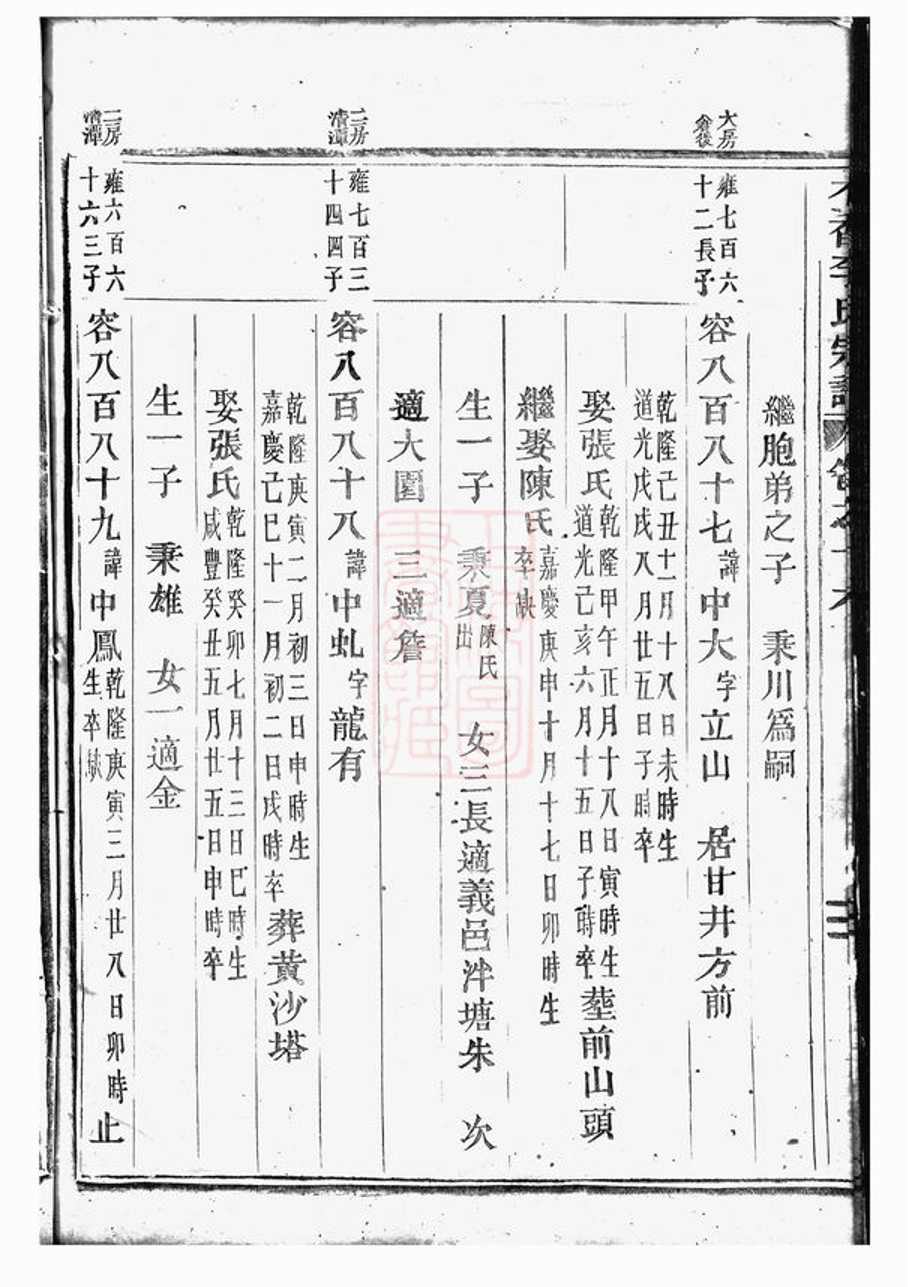 李氏宗譜
繼胞弟之子 秉川為嗣
大房
雍七百六十二長子
容八百八十七諱中大字立山 居甘井方前
乾隆己丑十一月十八日未時生
道光戊戌八月廿五日子時卒
娶張氏乾隆甲午正月十八日寅時生道光己亥六月十五日子時卒塟前山頭
繼娶陳氏嘉慶庚申十月十七日卯時生卒缺
生一子 秉夏陳氏出 女三長適義邑泮塘朱 次
適大園 三適詹
清潭
雍七百三十四四子
容八百八十八諱中虬字龍有
乾隆庚寅二月初三日申時生嘉慶己巳十一月初二日戌時卒葬黃沙塔
娶張氏乾隆癸卯七月十三日巳時生咸豐癸丑五月廿五日申時卒
生一子 秉雄 女一適金
二房清潭
雍六百六十六三子
容八百八十九諱中鳳乾隆庚寅三月廿八日卯時生卒缺止